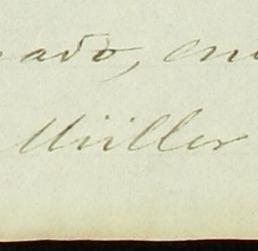 ado, en
Müller